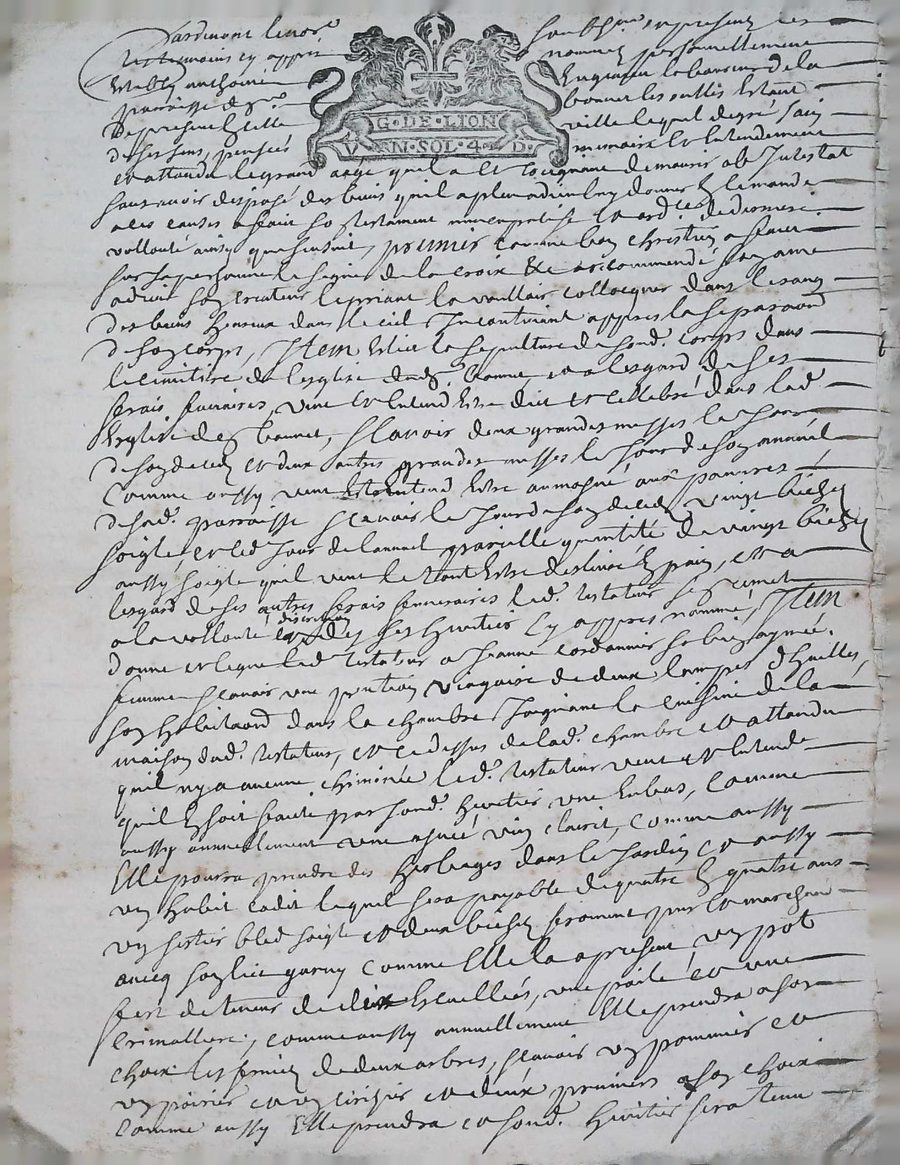 Pardevant le nore
et tesmoins cy appres
estably anthoine
parroisse de St
de present
de ses sens, pensée
soubsigné en presence des
nommés personnellement
la
bonnet les oulles estant
ville lequel de gré sain
memoire et entendement
G·DE·LION
V N·SOL·4·D·
et attandu le grand aage qu'il a et craignant de mourir ab intestat
sans avoir disposé des biens qu'il a pleu a dieu luy donner en ce monde
a ces causes a faict son testament nuncupatif et ord de derniere
vollonté ainsy que s'ensuit, premier comme bon chrestien a faict
sur sa personne le signe de la croix & a recommandé son ame
a dieu son createur le priant la voulloir collocquer dans le rang
des biens heureux dans le ciel incontinant appres la separaon
de son corps, Item eslit la sepulture de sond. corps dans
le cimitiere de l'esglise dud. St bonnet, et a l'esgard de ses
frais funeraires, veut et entend estre dict et cellebré dans lad.
esglise de St bonnet, scavoir deux grandes messes le jour
de son deced et deux autres grandes messes le jour de son annuel
comme aussy veut et entend estre aumosné aux pauvres
de lad. parroisse scavoir le jour de son deced vingt bichez
soigle, et led. jour de l'annuel pareille quantité de vingt bichez
aussy soigle qu'il veut le tout estre deslivré en pain, et a
l'esgard de ses autres frais funeraires led. testateur s'en remet
a la vollonté et discretion de ses heritiers cy appres nommé, Item
donne et legue led. testateur a Jeanne cordonnier sa bien aymée
femme scavoir une pention viagere de deux lampes d'huilles,
son habitaon dans la chambre joignant la cuisine de la
maison dud. testateur, et ce dessus de lad. chambre et attandu
qu'il n'y a aucune chiminée led. testateur veut et entend
qu'il en soit faicte par sond. heritier une en bas, comme
aussy annuellement une asnée vin clairet, comme aussy
elle pourra prendre des herbages dans le jardin et aussy
un habit cadit lequel sera payable de quatre en quatre ans
un sestier bled soigle et deux bichez froment pur et marchand
avecq son lict garny comme elle l'a a present un pot
fert de teneur de dix escuelles, une poile et une
crimalliere, comme aussy annuellement elle prendra a son
choix les fruict de deux arbres, scavoir un pommier et
un poirier et un cirisier et deux pruniers a son choix
comme aussy elle prendra et sond. heritier sera tenu